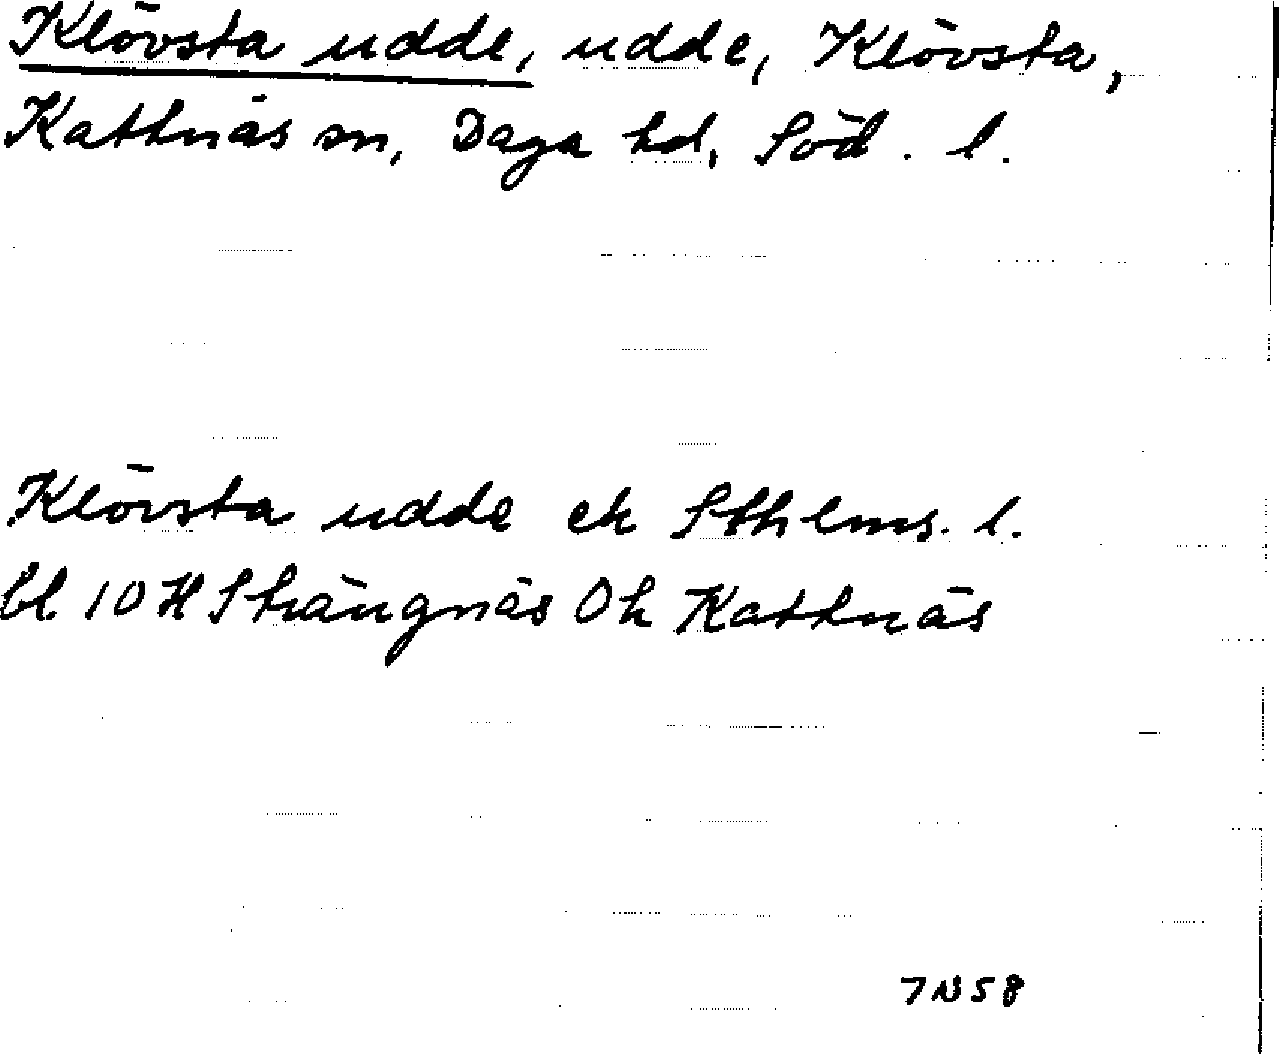 Klövsta udde, udde, Klövsta,
Kattnäs sn, Daga hd, Söd. l.
Klövsta udde ek Sthlms. l.
bl 10 H Strängnäs Ok Kattnäs
7 N 5 8